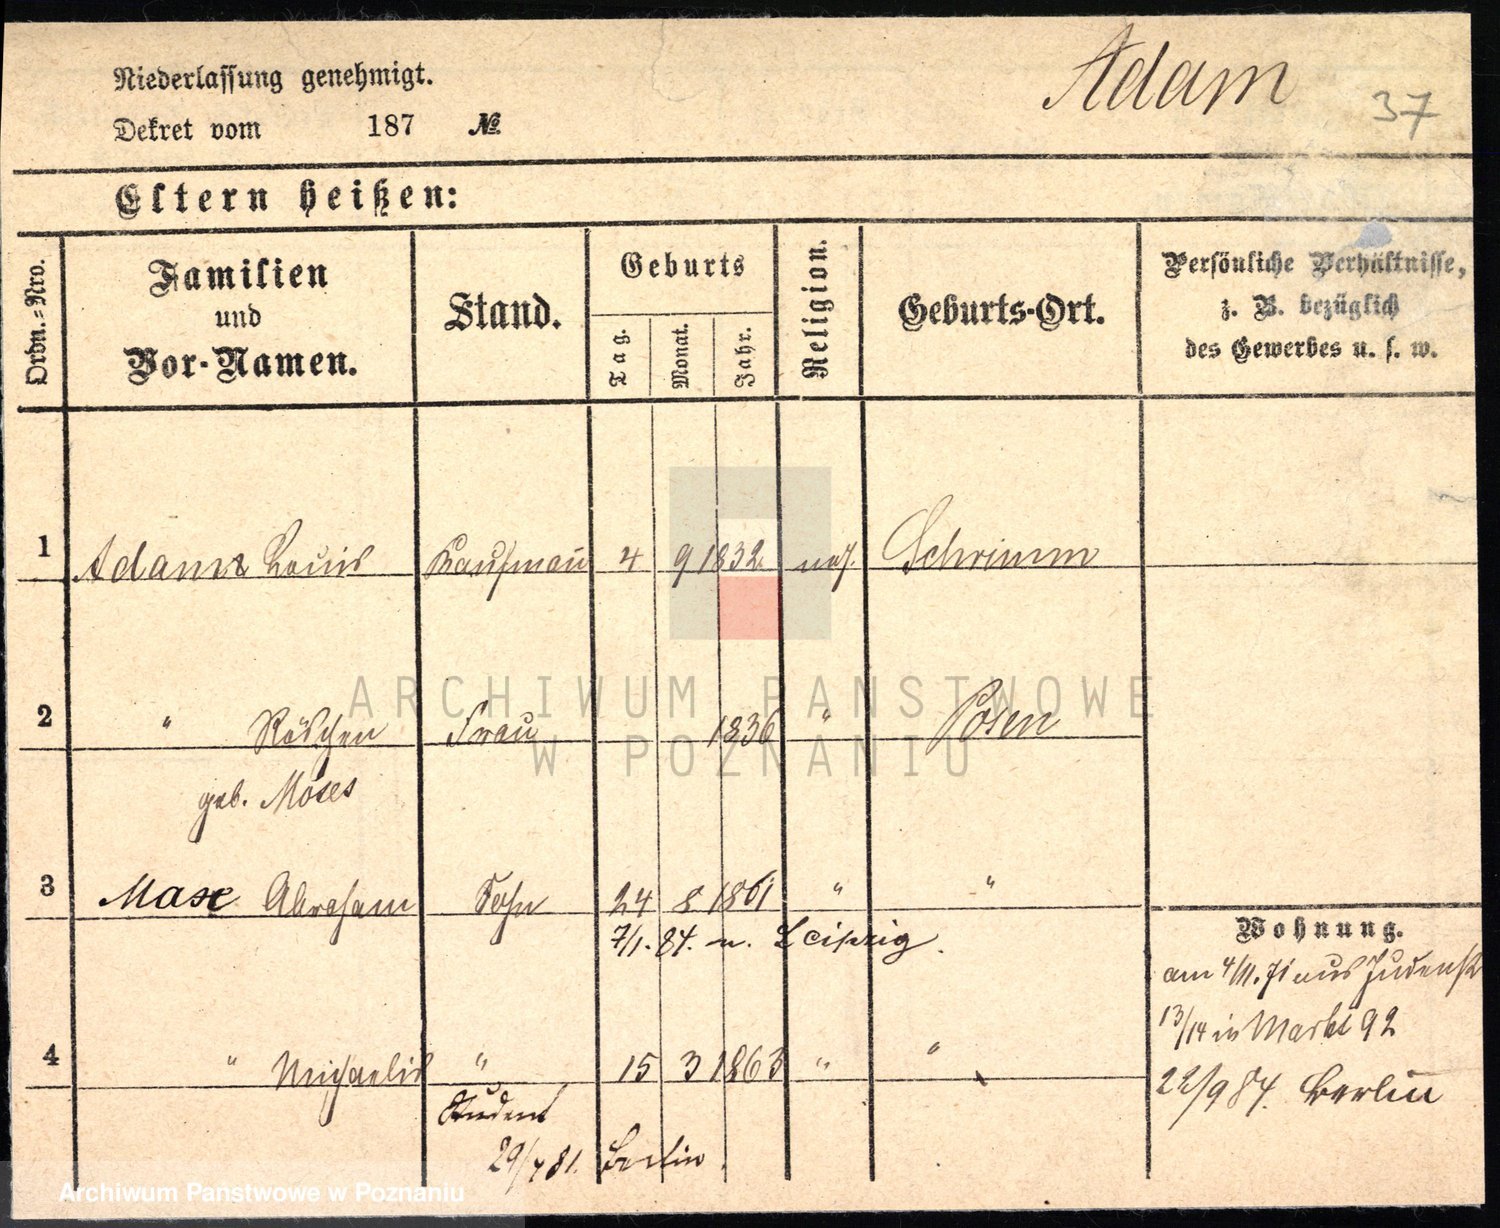 Niederlassung genehmigt.
Dekret vom 187 №
Adam
37
Eltern heißen:
Ordn.-Nro.
Familien
und
Vor-Namen.
Stand.
Geburts
Tag.
Monat.
Jahr.
Religion.
Geburts-Ort.
Persönliche Verhältnisse,
z. B. bezüglich
des Gewerbes u. s. w.
1 Adam Louis Kaufmann 4 9 1832 mos. Schrimm
2 " Röschen Frau 1836 " Posen
geb. Moses
3 Max Abraham Sohn 24 8 1861 " "
7/1. 84. n. Leipzig.
Wohnung.
am 4/11. 71 aus Judenstr
13/14 in Markt 92
4 " Michaelis " 15 3 1863 " "
22/9 84. Berlin
Student
29/4 81. Berlin.
ARCHIWUM PAŃSTWOWE
W POZNANIU
Archiwum Państwowe w Poznaniu